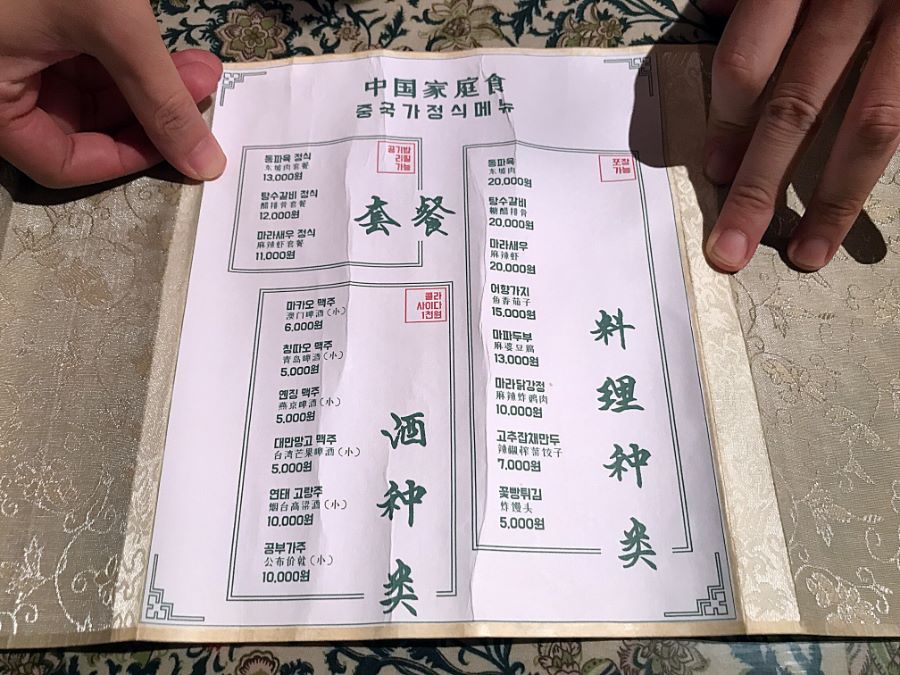 中国家庭食
중국가정식메뉴
공기밥
리필
가능
동파육 정식
东坡肉套餐
13,000원
탕수갈비 정식
醋排骨套餐
12,000원
마라새우 정식
麻辣虾套餐
11,000원
套餐
콜라
사이다
1천원
마카오 맥주
澳门啤酒(小)
6,000원
칭따오 맥주
青岛啤酒(小)
5,000원
옌징 맥주
燕京啤酒(小)
5,000원
대만망고 맥주
台湾芒果啤酒(小)
5,000원
연태 고량주
烟台高粱酒(小)
10,000원
공부가주
公布价就(小)
10,000원
酒种类
포장
가능
동파육
东坡肉
20,000원
탕수갈비
糖醋排骨
20,000원
마라새우
麻辣虾
20,000원
어향가지
鱼香茄子
15,000원
마파두부
麻婆豆腐
13,000원
마라닭강정
麻辣炸鸡肉
10,000원
고추잡채만두
辣椒榨菜饺子
7,000원
꽃빵튀김
炸馒头
5,000원
料理种类